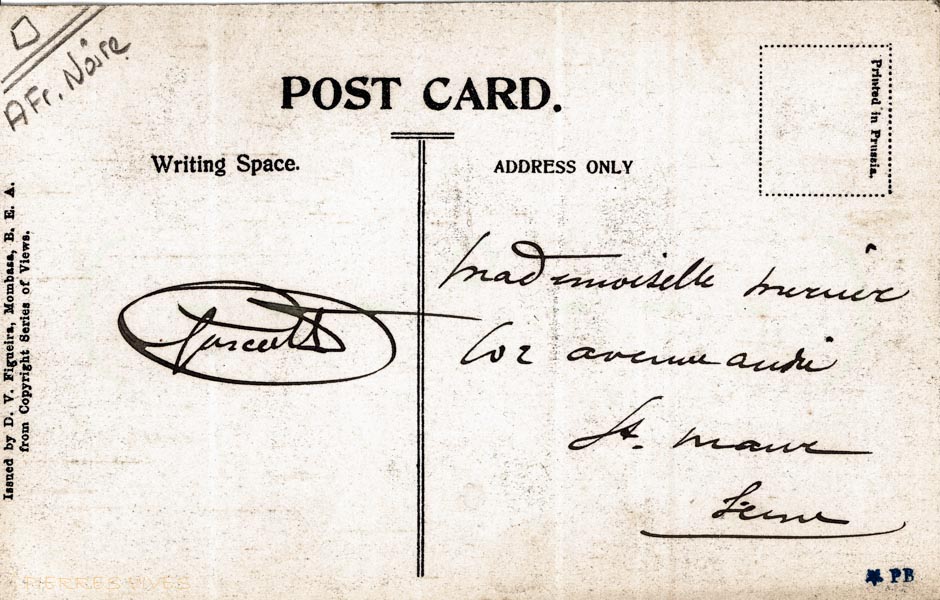 AFr. Noire
POST CARD.
Printed in Prussia.
Writing Space.
ADDRESS ONLY
Issued by D. V. Figueira, Mombasa, B. E. A.
from Copyright Series of Views.
Mademoiselle
102 avenue
St. Maur
Seine
PB
PIERRES VIVES